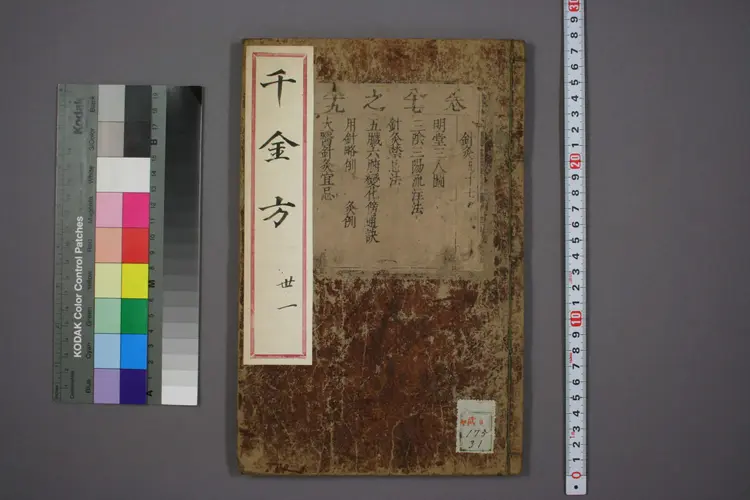 千金方
丗一
針灸
明堂三人圖
三陰三陽流注法
針灸禁忌法
五臟六腑變化傍通訣
用針略例 灸例
大醫針灸宜忌
31
Kodak
KODAK Color Control Patches
Blue
Cyan
Green
Yellow
Red
Magenta
White
3/Color
Black
0 1 2 3 4 5 6 7 8 9 10 1 2 3 4 5 6 7 8 9 20 1 2 3 4 5 6 7 8 9 30